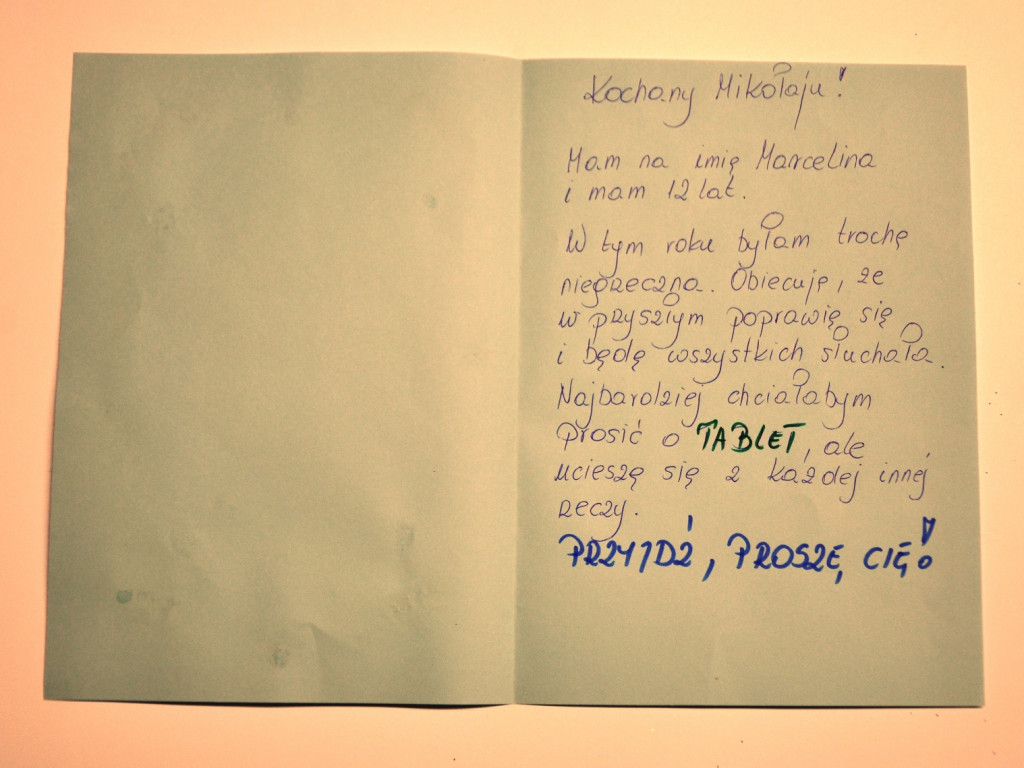 Kochany Mikołaju!
Mam na imię Marcelina
i mam 12 lat.
W tym roku byłam trochę
niegrzeczna. Obiecuję, że
w przyszłym poprawię się
i będę wszystkich słuchała.
Najbardziej chciałabym
prosić o TABLET, ale
ucieszę się z każdej innej
rzeczy.
PRZYJDŹ, PROSZĘ CIĘ!